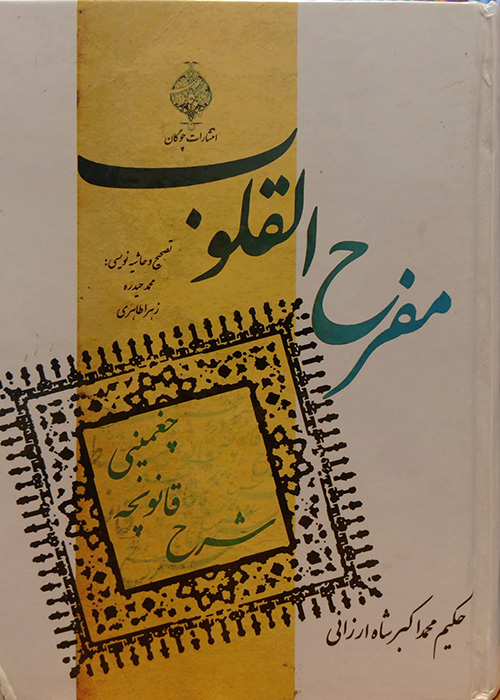 انتشارات چوگان
مفرح القلوب
تصحیح و حاشیه نویسی:
محمد حیدره
زهرا طاهری
شرح
قانونچه
چغمینی
حکیم محمد اکبر شاه ارزانی